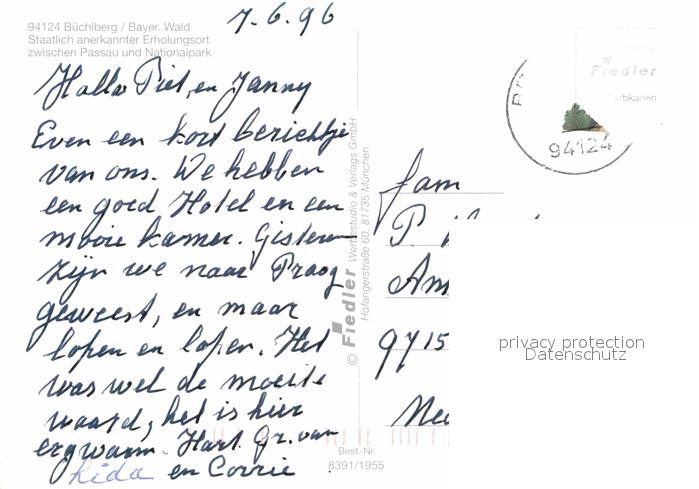 7.6.96
94124 Büchlberg / Bayer. Wald
Staatlich anerkannter Erholungsort
zwischen Passau und Nationalpark
Hallo Piet, en Janny
Even een kort berichtje
van ons. We hebben
een goed Hotel en een
mooie kamer. Gisteren
zijn we naar Praag
geweest, en maar
lopen en lopen. Het
was wel de moeite
waard, het is hier
erg warm. Hart. Gr. van
Lida en Corrie
© Fiedler Werbestudio & Verlags GmbH
Hofangerstraße 60, 81735 München
Best.-Nr.
8391/1955
Fiedler
94124
fam
P.
Am
9715
Ne
privacy protection
Datenschutz